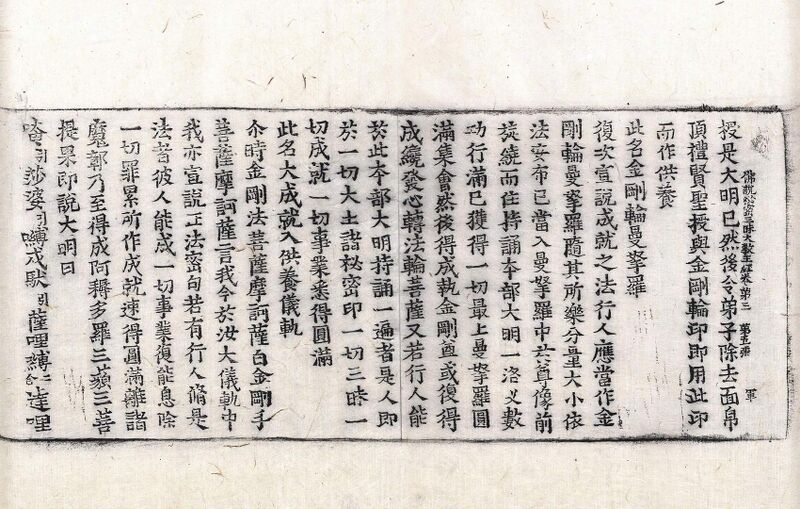 佛說祕密三昧大教王經卷第三　第五張　軍
授是大明已然後令弟子除去面帛
頂禮賢聖授與金剛輪印即用此印
而作供養
此名金剛輪曼拏羅
復次宣說成就之法行人應當作金
剛輪曼拏羅隨其所樂分量大小依
法安布已當入曼拏羅中於尊像前
繞而住持誦本部大明一洛叉數
功行滿已獲得一切最上曼拏羅圓
滿集會然後得成執金剛尊或復得
成纔發心轉法輪菩薩又若行人能
於此本部大明持誦一遍者是人即
於一切大士諸祕密印一切三時一
切成就一切事業悉得圓滿
此名大成就入供養儀軌
尒時金剛法菩薩摩訶薩白金剛手
菩薩摩訶薩言我今於汝大儀軌中
我亦宣說正法密句若有行人脩是
法者彼人能成一切事業復能息除
一切罪累所作成就速得圓滿離諸
魔鄣乃至得成阿耨多羅三藐三菩
提果即說大明曰
唵引莎婆引嚩戍馱引薩哩嚩二合達哩